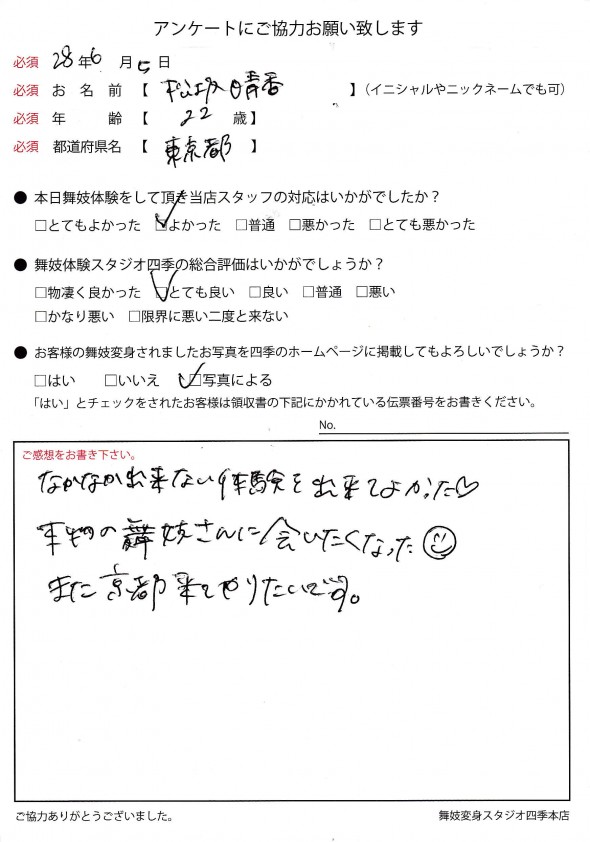 アンケートにご協力お願い致します
必須 28年6月5日
必須 お名前【 】(イニシャルやニックネームでも可)
必須 年齢【 22 歳】
必須 都道府県名【 東京都 】
● 本日舞妓体験をして頂き当店スタッフの対応はいかがでしたか?
□とてもよかった ☑よかった □普通 □悪かった □とても悪かった
● 舞妓体験スタジオ四季の総合評価はいかがでしょうか?
□物凄く良かった ☑とても良い □良い □普通 □悪い
□かなり悪い □限界に悪い二度と来ない
● お客様の舞妓変身されましたお写真を四季のホームページに掲載してもよろしいでしょうか?
□はい □いいえ ☑写真による
「はい」とチェックをされたお客様は領収書の下記にかかれている伝票番号をお書きください。
No.
ご感想をお書き下さい。
なかなか出来ない体験を出来てよかった♡
本物の舞妓さんに会いたくなった☺
また京都来てやりたいです。
ご協力ありがとうございました。 舞妓変身スタジオ四季本店